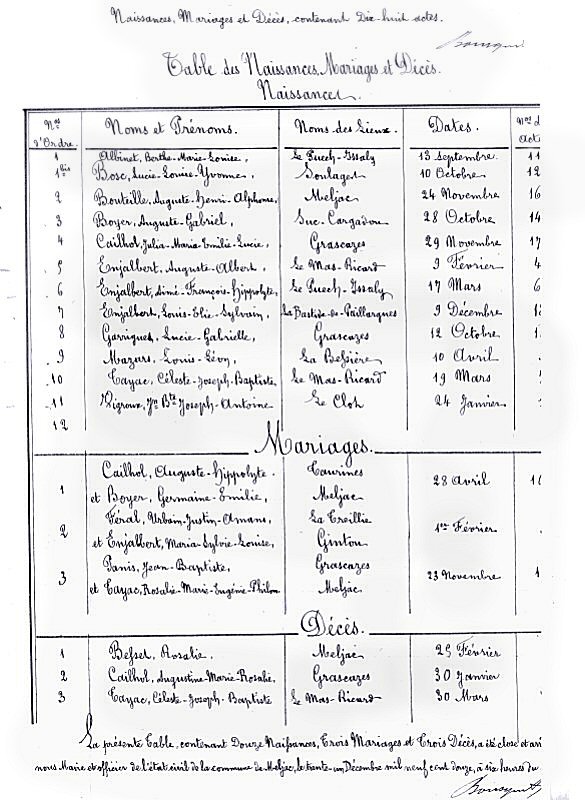 Naissances, Mariages et Décès, contenant Dix-huit actes.
Bousquet
Table des Naissances, Mariages et Décès.
Naissances.
Nos d'Ordre. Noms et Prénoms. Noms des Lieux. Dates. Nos d
1 Albinet, Berthe-Marie-Louise, Le Puech-Issaly 13 septembre 11
1bis Bosc, Lucie-Louise-Yvonne, Soulages 10 Octobre 12
2 Bouteille, Auguste-Henri-Alphonse, Meljac 24 Novembre 16
3 Boyer, Auguste-Gabriel, Suc-Cargadou 28 Octobre 14
4 Cailhol, Julia-Maria-Emilie-Lucie, Grascazes 29 Novembre 17
5 Enjalbert, Auguste-Albert, Le Mas-Ricard 9 Février 4
6 Enjalbert, Aimé-François-Hippolyte, Le Puech-Issaly 17 Mars 6
7 Enjalbert, Louis-Elie-Sylvain, La Bastide-de-Paillargues 9 Décembre 18
8 Garrigues, Lucie-Gabrielle, Grascazes 12 Octobre 1
9 Mazars, Louis-Lévy, La Bessière 10 Avril
10 Tayac, Céleste-Joseph-Baptiste Le Mas-Ricard 19 Mars
11 Vigroux, Jn Bte Joseph-Antoine Le Clot 24 Janvier
12
Mariages.
1 Cailhol, Auguste-Hippolyte Taurines 28 Avril 10
et Boyer, Germaine-Emilie, Meljac
2 Féral, Urbain-Justin-Amans, La Treillie 1er Février
et Enjalbert, Maria-Sylvie-Louise, Gintou
3 Panis, Jean-Baptiste, Grascazes 23 Novembre 1
et Tayac, Rosalie-Marie-Eugénie-Philom Meljac
Décès.
1 Besset, Rosalie. Meljac 25 Février
2 Cailhol, Augustine-Marie-Rosalie, Grascazes 30 Janvier
3 Tayac, Céleste-Joseph-Baptiste Le Mas-Ricard 30 Mars
La présente Table, contenant Douze Naissances, Trois Mariages et Trois Décès, a été close et arr
nous Maire et officier de l'état civil de la commune de Meljac, le trente-un Décembre mil neuf cent douze, à six heures du
Bousquet